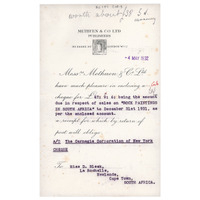 worth about £38
METHUEN & CO LTD
PUBLISHERS
4 MAY 1932
Messrs. Methuen & Co. Ltd.
have much pleasure in enclosing a
cheque for £71 9/ 4d being the amount
due in respect of sales on "ROCK PAINTINGS
IN SOUTH AFRICA" to December 31st 1931. as
per the enclosed account.
a receipt for which by return of
post will oblige.
A/C The Carnegie Corporation of New York
CHEQUE
To Miss D. Bleek,
La Rochelle,
Newlands,
Cape Town,
SOUTH AFRICA.